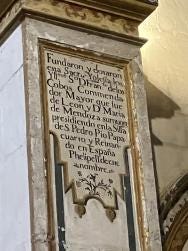 Fundaron y dotaron
esta Sacra Yglesia los
Yllmos Sres Dn Franco delos
Cobos Commenda
dor Mayor que fue
de Leon y Da Maria
de Mendoza su muger
presidiendo en la Silla
de S. Pedro Pio Papa
cuarto y Reinan
do en España
Phelipe II de este
nombre.